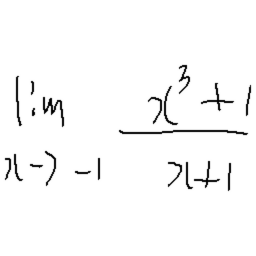 lim x^3 + 1
x -> -1 x + 1